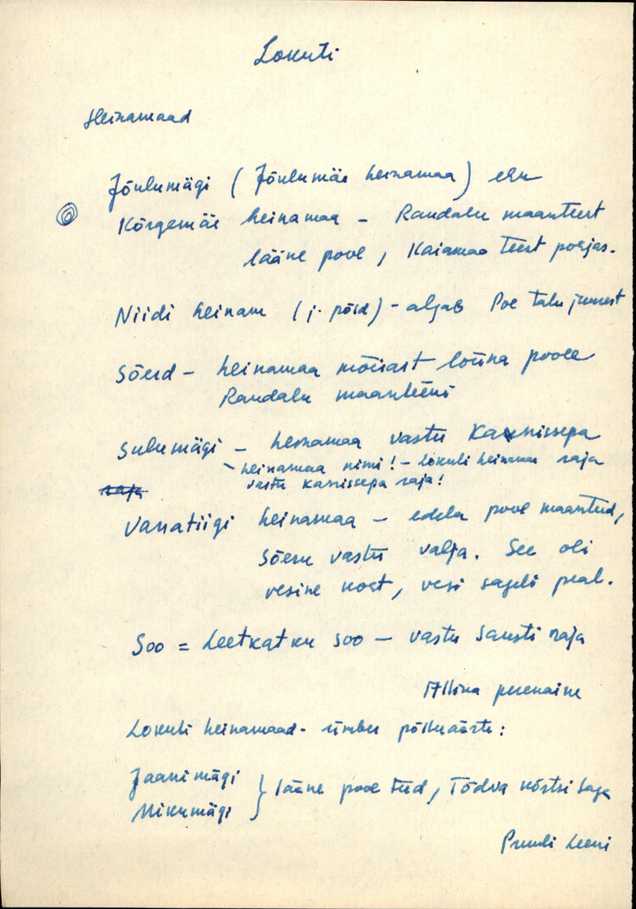 Lokuti
Heinamaad
Jõulumägi (Jõulumäe heinamaa) ehk
Kõrgemäe heinamaa – Randalu maanteest
lääne pool, Kaiamaa teest põhjas.
Niidi heinam (j. põld) – algab Poe talu juurest
Sõerd – heinamaa mõisast lõuna poole
Randalu maanteeni
Sulumägi – heinamaa vastu Kannissepa
heinamaa nimi! – Lokuti heinamaa raja
vastu Kannissepa raja!
raja
Vanatiigi heinamaa – edela pool maanteed,
Sõeru vastu välja. See oli
vesine koht, vesi sageli peal.
Soo = Leetkatku soo – vastu Sausti raja
perenaine
Lokuti heinamaad – ümber põlluäärte:
Jaanimägi
Mikumägi } lääne pool teed, Tõdva kõrtsi taga
Leeni